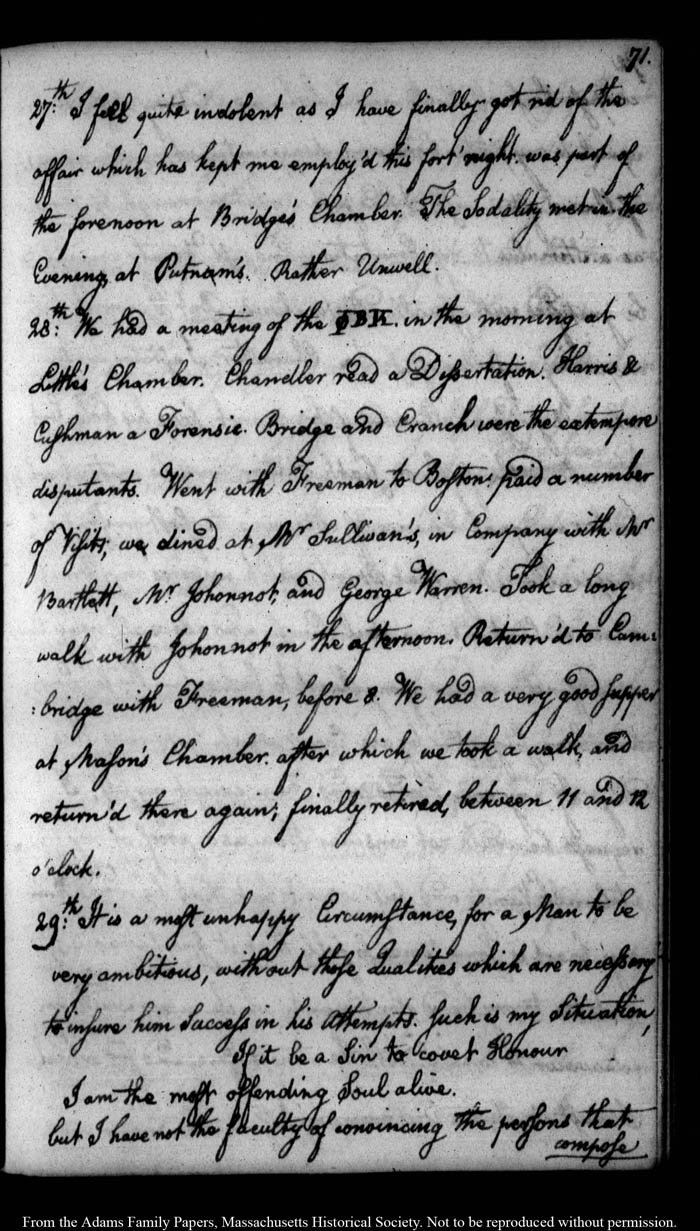 71.
27.th I feel quite indolent as I have finally got rid of the
affair which has kept me employ'd this fort'night. was part of
the forenoon at Bridge's Chamber. The Sodality met in the
Evening, at Putnam's. Rather Unwell.
28:th We had a meeting of the ΦBK. in the morning at
Little's Chamber. Chandler read a Dissertation. Harris &
Cushman a Forensic. Bridge and Cranch were the extempore
disputants. Went with Freeman to Boston: paid a number
of Visits; we dined at Mr Sullivan's, in Company with Mr
Bartlett, Mr Johonnot, and George Warren. Took a long
walk with Johonnot in the afternoon. Return'd to Cam:
:bridge with Freeman, before 8. We had a very good supper
at Mason's Chamber. after which we took a walk, and
return'd there again; finally retired, between 11 and 12
o'clock.
29:th It is a most unhappy Circumstance, for a Man to be
very ambitious, without those Qualities which are necessary
to insure him Success in his Attempts. Such is my Situation,
If it be a Sin to covet Honour
I am the most offending Soul alive.
but I have not the faculty of convincing the persons that
compose
From the Adams Family Papers, Massachusetts Historical Society. Not to be reproduced without permission.